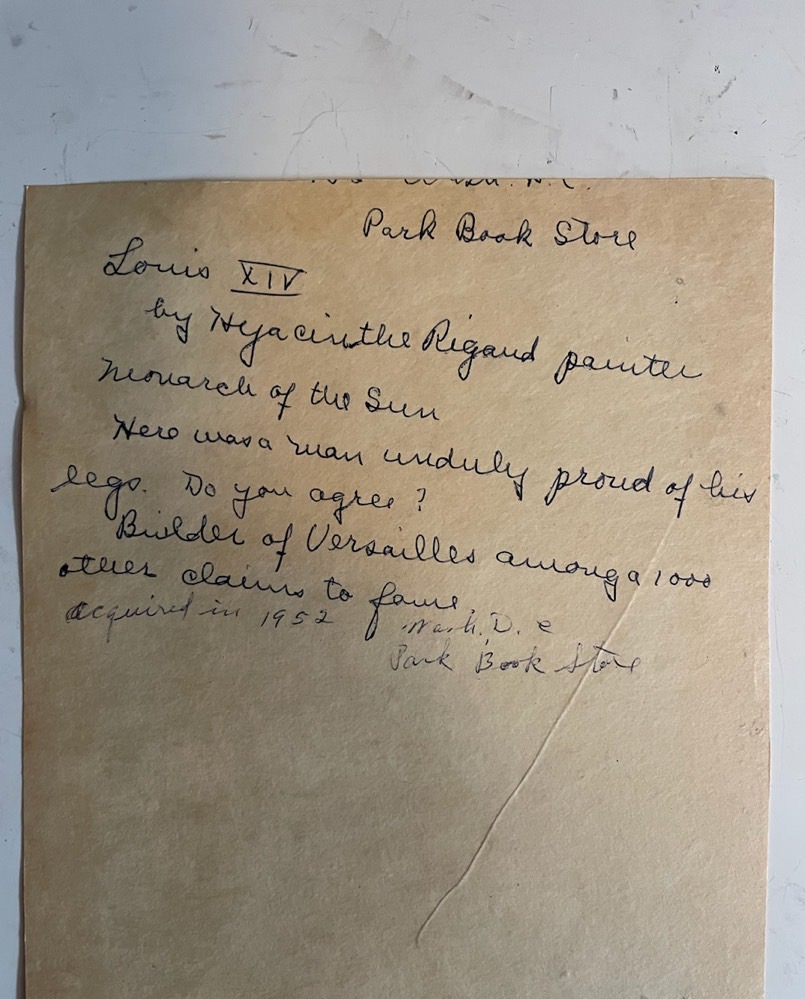 Wash. D.C.
Park Book Store
Louis XIV
by Hyacinthe Rigaud painter
Monarch of the Sun
Here was a man unduly proud of his
legs. Do you agree?
Builder of Versailles among a 1000
other claims to fame.
acquired in 1952 Wash. D. C
Park Book Store